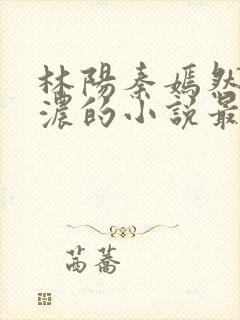 林陽秦嫣然
濃的小說最
茵蕎